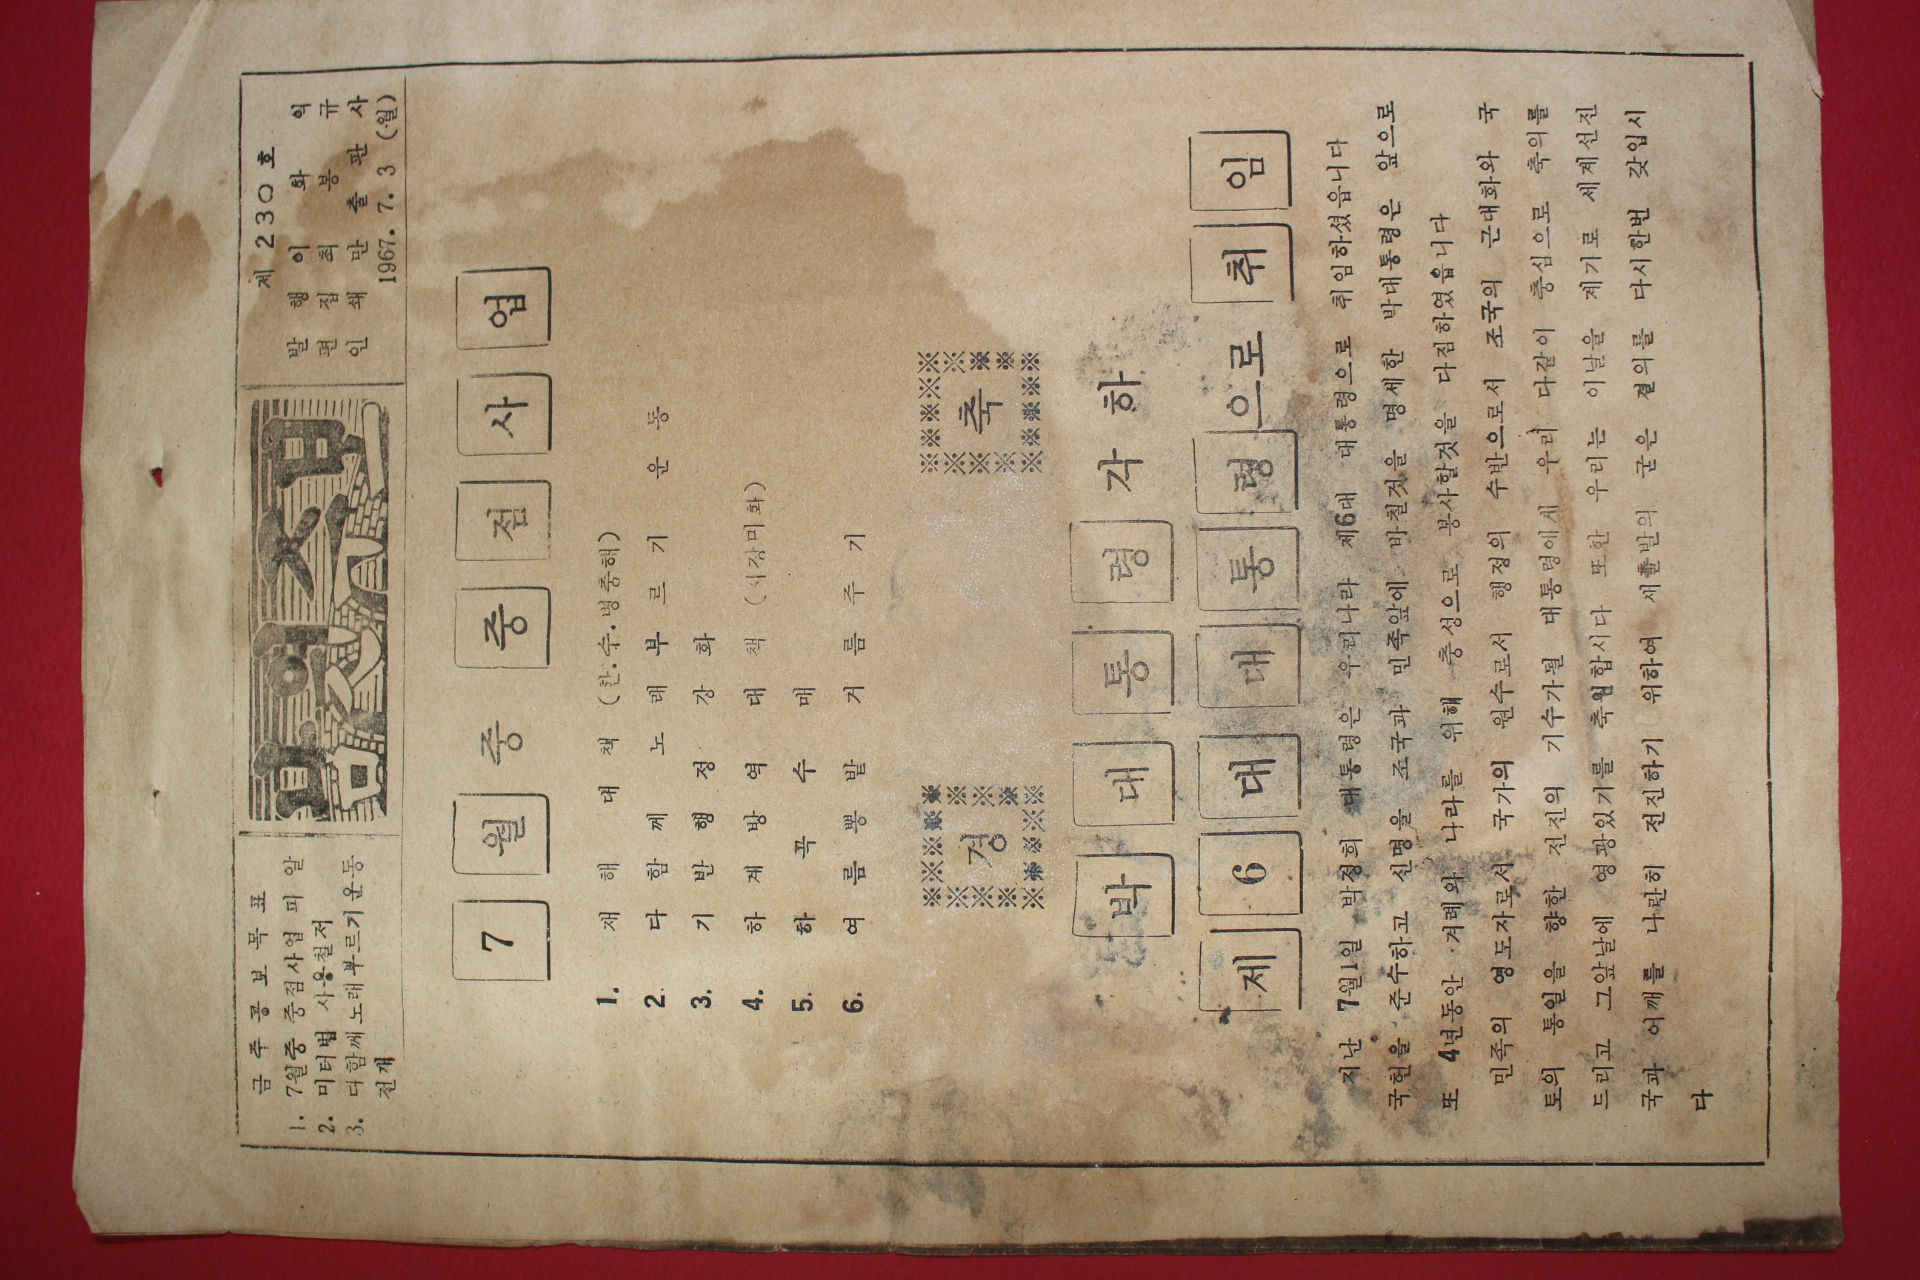 금주공보목표
1. 7월중 중점사업 피알
2. 미터법 사용철저
3. 다함께노래부르기운동
전개
제 230호
발행 이화익
편집 최봉규
인쇄 만출판사
1967. 7. 3 (월)
7월중 중점사업
1. 재해대책 (한.수.병충해)
2. 다함께노래부르기운동
3. 기반행정강화
4. 하계방역대책 (시장미화)
5. 하곡수매
6. 여름뽕밭거름주기
경 축
박대통령각하
제6대대통령으로취임
지난 7월1일 박정희 대통령은 우리나라 제6대 대통령으로 취임하셨읍니다
국헌을 준수하고 신명을 조국과 민족앞에 바칠것을 명세한 박대통령은 앞으로
또 4년동안 겨레와 나라를 위해 충성으로 봉사할것을 다짐하였읍니다
민족의 영도자로서 국가의 원수로서 행정의 수반으로서 조국의 근대화와 국
토의 통일을 향한 전진의 기수가될 대통령에게 우리 다같이 충심으로 축의를
드리고 그앞날에 영광있기를 축원합시다 또한 우리는 이날을 계기로 세계선진
국과 어깨를 나란히 전진하기 위하여 새출발의 굳은 결의를 다시한번 갖입시
다